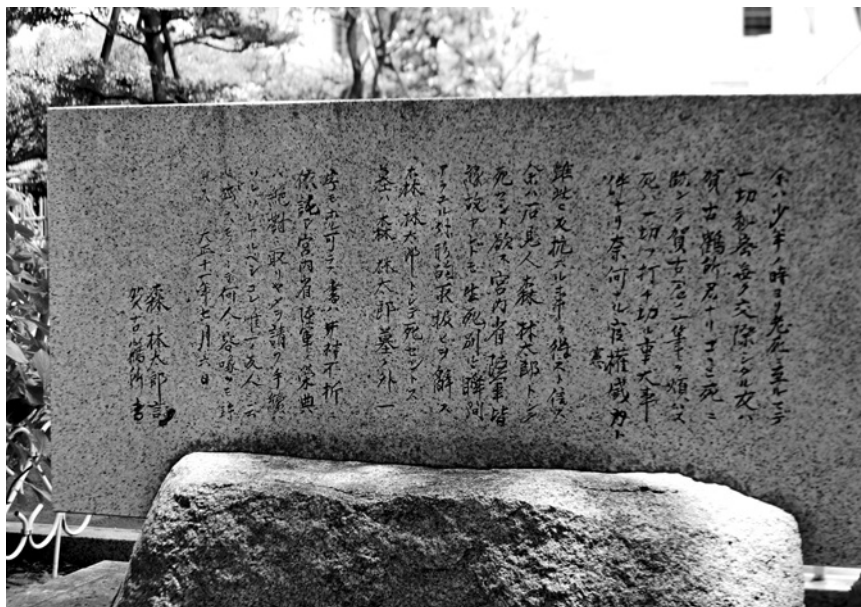 余ハ少年ノ時ヨリ老死ニ至ルマデ
一切秘密無ク交際シタル友ハ
賀古鶴所君ナリコヽニ死ニ
臨ンテ賀古君ノ一筆ヲ煩ハス
死ハ一切ヲ打チ切ル重大事
件ナリ奈何ナル官權威力ト
憲
雖此ニ反抗スル事ヲ得スト信ス
余ハ石見人森林太郎トシテ
死セント欲ス宮内省陸軍皆
縁故アレドモ生死別ルヽ瞬間
アラユル外形的取扱ヒヲ辭ス
森林太郎トシテ死セントス
墓ハ森林太郎墓ノ外一
字モホル可ラス書ハ中村不折ニ
依託シ宮内省陸軍ノ榮典
ハ絶對ニ取リヤメヲ請フ手續ハ
ソレゾレアルベシコレ唯一ノ友人ニ云
ヒ殘スモノニシテ何人ノ容喙ヲモ許
サス 大正十一年七月六日
森林太郎言
賀古鶴所書